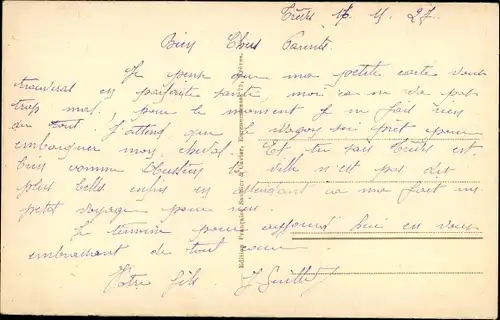 Trèves 17. 11. 27.
Bien Chers Parents
Je pense que ma petite carte vous
trouverai en parfaite santé, moi ca ne va pas
trop mal, pour le moment je ne fait rien
du tout. J'attend que le wagon soi prêt pour
embarquer mon cheval. Et tu sais Trèves est
bien comme ville n'est pas des
plus belle enfin en attendant ca me fait un
petit voyage pour rien.
Je termine pour aujourd'hui en vous
embrassant de tout cœur.
Votre fils
Edition Française